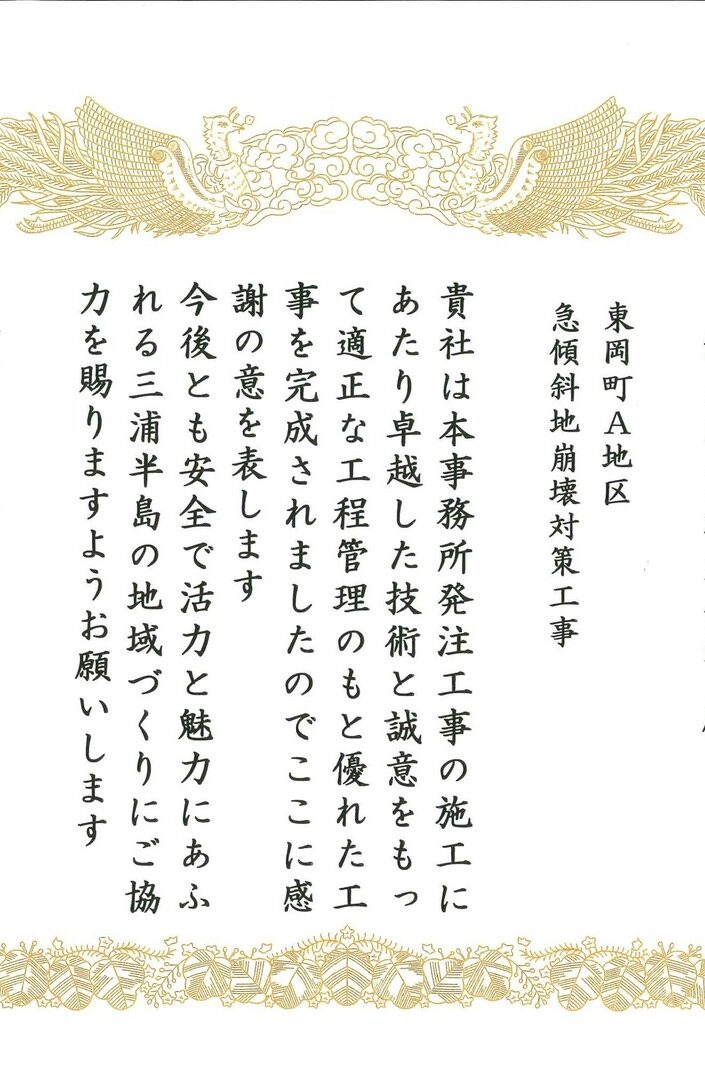 東岡町A地区
急傾斜地崩壊対策工事
貴社は本事務所発注工事の施工に
あたり卓越した技術と誠意をもっ
て適正な工程管理のもと優れた工
事を完成されましたのでここに感
謝の意を表します
今後とも安全で活力と魅力にあふ
れる三浦半島の地域づくりにご協
力を賜りますようお願いします